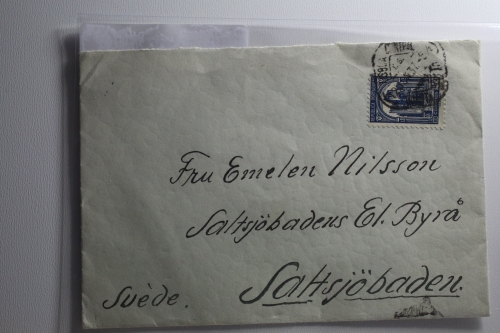 Fru Emelen Nilsson
Saltsjöbadens El. Byrå
Saltsjöbaden.
Suède.